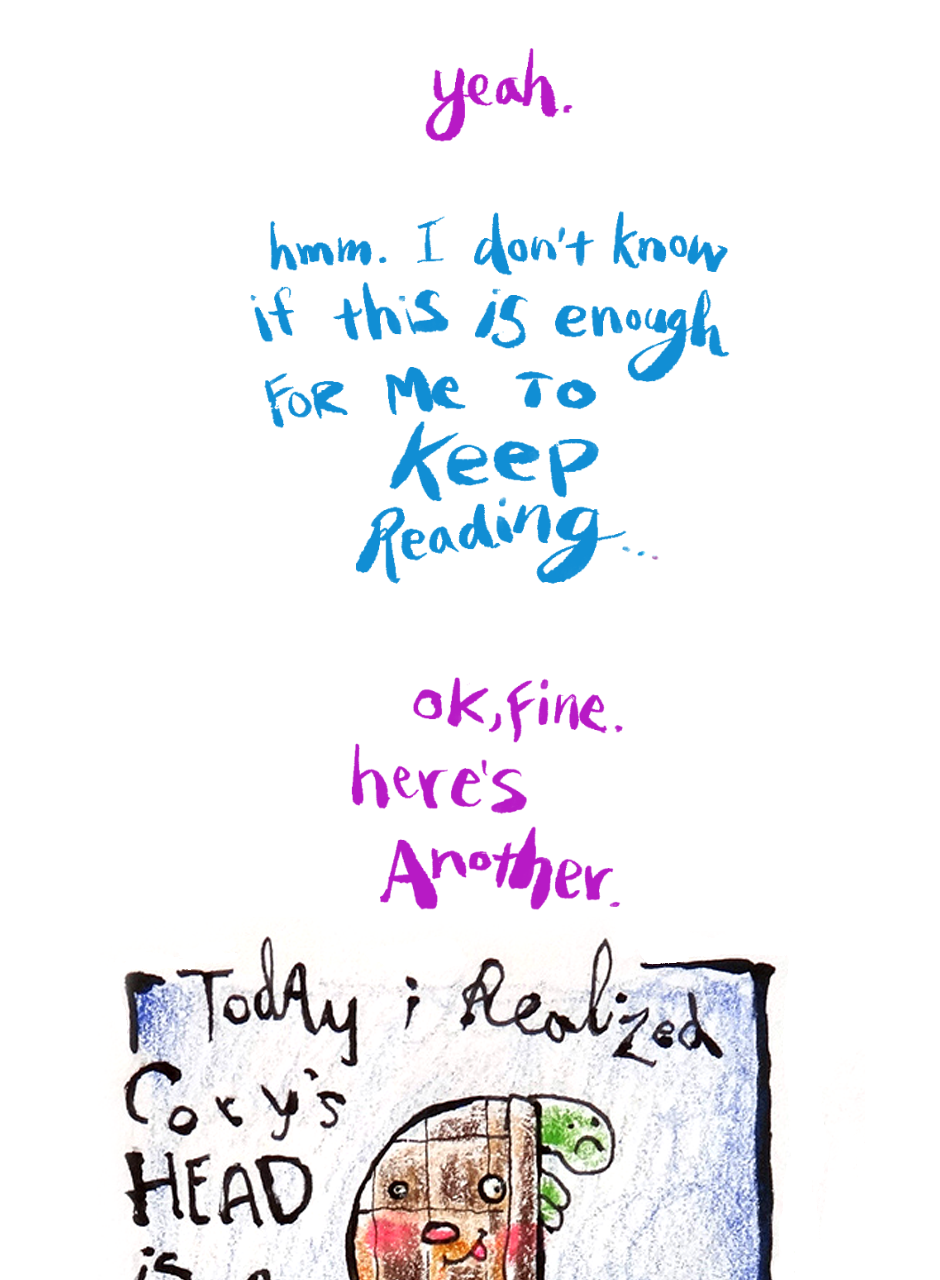 yeah.
hmm. I don't know
if this is enough
FOR Me TO
Keep
Reading...
ok, fine.
here's
Another.
TodAy i Realized
Cory's
HEAD
is